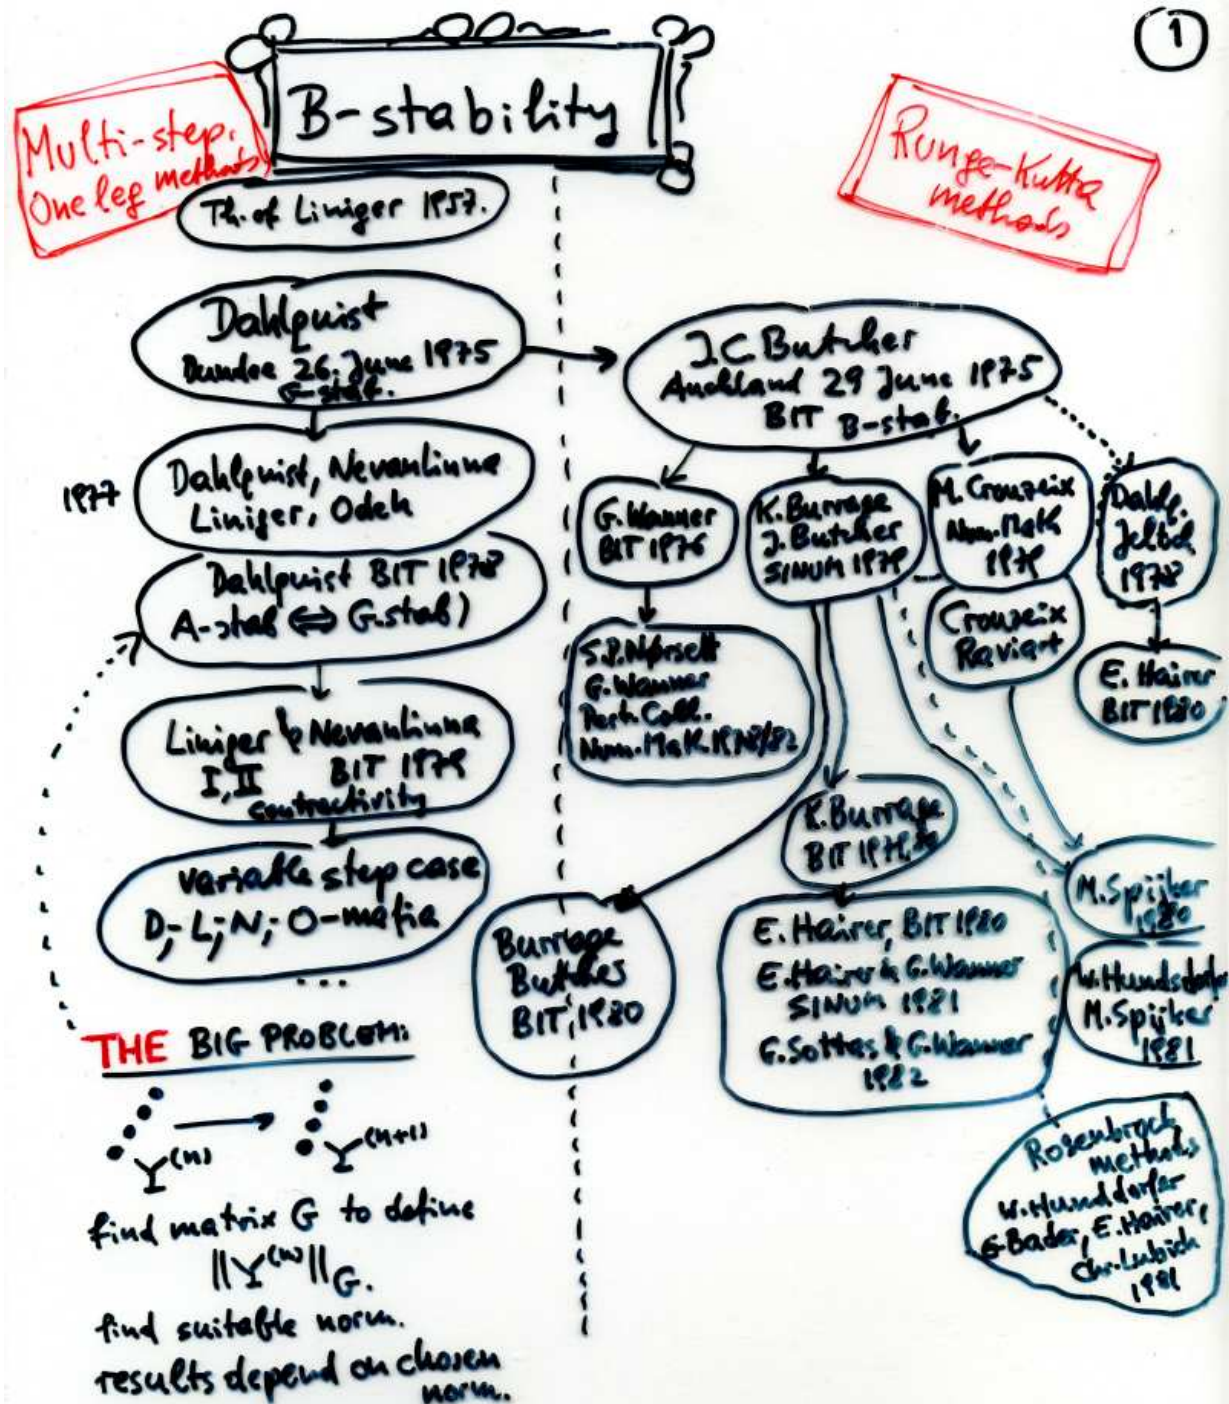 1
B-stability
Multi-step.
One leg methods
Runge-Kutta
methods
Th. of Liniger 1957.
Dahlquist
Dundee 26. June 1975
G-stab.
1977
Dahlquist, Nevanlinna
Liniger, Odeh
Dahlquist BIT 1978
A-stab ⇔ G.stab)
Liniger & Nevanlinna
I, II BIT 1979
contractivity
variable step case
D-; L-; N-; O-mafia
...
THE BIG PROBLEM:
Y^(n)
Y^(n+1)
find matrix G to define
||Y^(n)||_G.
find suitable norm.
results depend on chosen
norm.
J.C. Butcher
Auckland 29 June 1975
BIT B-stab.
G. Wanner
BIT 1976
S.P. Nørsett
G. Wanner
Pert. Coll.
Num. Math. 1978/82
K. Burrage
J. Butcher
SINUM 1979
M. Crouzeix
Num. Math
1979
Crouzeix
Raviart
Dahlq.
Jeltsch
1978
E. Hairer
BIT 1980
K. Burrage
BIT
Burrage
Butcher
BIT, 1980
E. Hairer, BIT 1980
E. Hairer & G. Wanner
SINUM 1981
G. Sottas & G. Wanner
1982
M. Spijker
1980
W. Hundsdorfer
M. Spijker
1981
Rosenbrock
methods
W. Hunddorfer
G. Bader, E. Hairer,
Chr. Lubich
1981